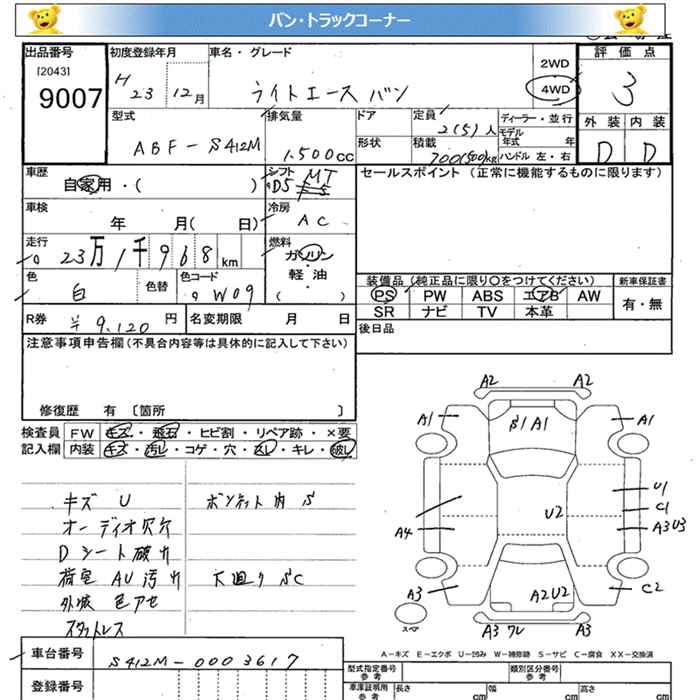 バン・トラックコーナー
出品番号
[2043]
9007
初度登録年月
H 23 12月
車名・グレード
ライトエース バン
2WD
4WD
評価点
3
外装 内装
D D
型式
ABF-S412M
排気量
1.500cc
ドア
形状
定員
2(5)人
積載
700(500)kg
ディーラー・並行
モデル
年式 年
ハンドル 左・右
車歴
自家用・( )
シフト
D5 MT
セールスポイント (正常に機能するものに限ります)
車検
年 月( 日)
冷房
AC
走行
23万1千968km
燃料
ガソリン
軽・油
( )
色
白
色替
色コード
W09
装備品 (純正品に限り〇をつけてください)
新車保証書
PS PW ABS エアB AW
SR ナビ TV 本革
有・無
R券 ¥9,120円
名変期限 月 日
後日品
注意事項申告欄(不具合内容等は具体的に記入して下さい)
修復歴 有 〔箇所 〕
検査員
記入欄
FW キズ・飛石・ヒビ割・リペア跡・×要
内装 キズ・汚レ・コゲ・穴・スレ・キレ・破レ
キズ U
オーディオ穴穴
Dシート破れ
荷室 AU 汚れ
外装 色アセ
スタットレス
ボンネット内 S
下廻り SC
A2 A2
A1 S1 A1 A1
U1
C1
A3 U3
U2
A4
A3 A2 U2 C2
スペア
A3 ワレ A3
A-キズ E-エクボ U-凹み W-補修跡 S-サビ C-腐食 XX-交換済
車台番号
S412M-0003617
登録番号
型式指定番号
参考
類別区分番号
参考
車庫証明用
参考
長さ cm
幅 cm
高さ cm